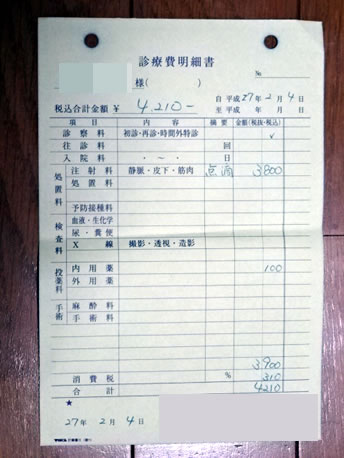 診療費明細書
様( )
№
自 平成 27年 2月 4日
至 平成 年 月 日
税込合計金額 ¥ 4,210-
項 目 内 容 摘 要 金額(税抜・税込)
診 察 料 初診・再診・時間外特診 ✓
往 診 料 回
入 院 料 ・ ~ ・ 日
処置料 注 射 料 静脈・皮下・筋肉 点滴 3,800
処 置 料
予防接種料
検査料 血液・生化学
尿・糞便
X 線 撮影・透視・造影
投薬料 内 用 薬 100
外 用 薬
手術 麻 酔 料
手 術 料
3,900
消 費 税 % 310
合 計 4210
★
27年 2月 4日